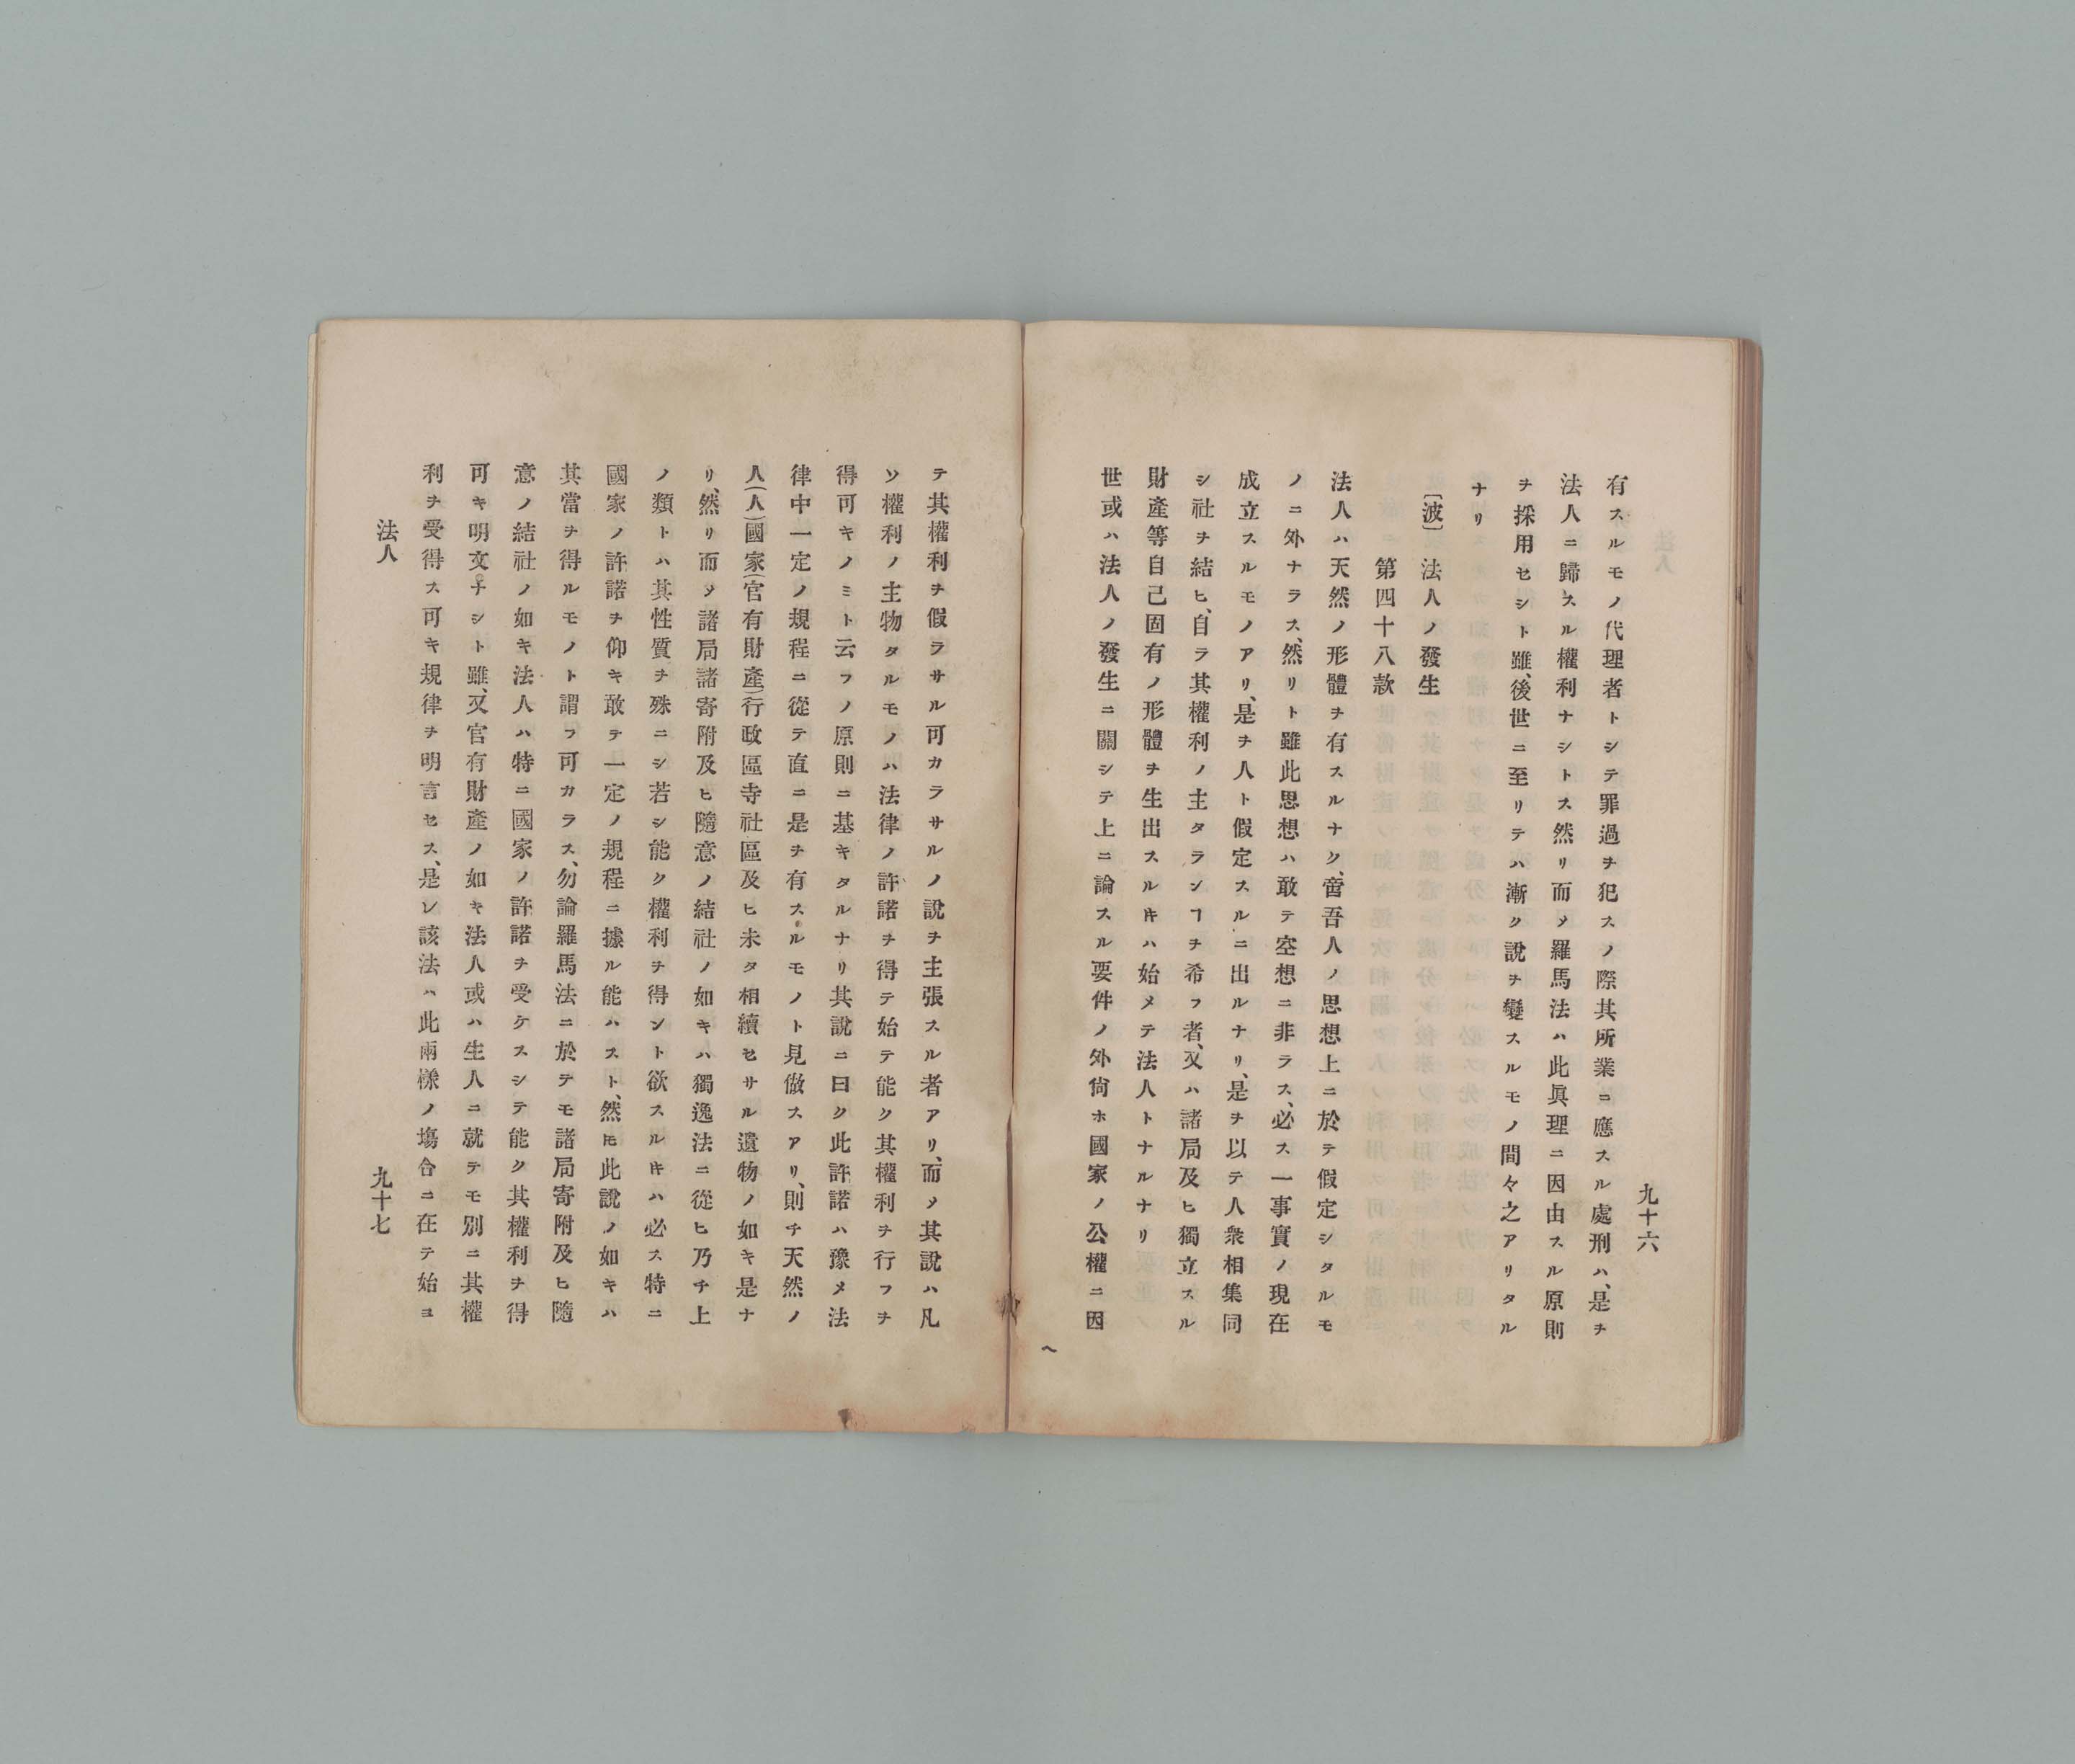 九十六
有スルモノ代理者トシテ罪過ヲ犯スノ際其所業ニ應スル處刑ハ、是ヲ
法人ニ歸スル權利ナシトス然リ而〆羅馬法ハ此眞理ニ因由スル原則
ヲ採用セシト雖、後世ニ至リテハ漸ク說ヲ變スルモノ間々之アリタル
ナリ
〔波〕　法人ノ發生
第四十八款
法人ハ天然ノ形體ヲ有スルナク、啻吾人ノ思想上ニ於テ假定シタルモ
ノニ外ナラス、然リト雖此思想ハ敢テ空想ニ非ラス、必ス一事實ノ現在
成立スルモノアリ、是ヲ人ト假定スルニ出ルナリ、是ヲ以テ人衆相集同
シ社ヲ結ヒ、自ラ其權利ノ主タランヿヲ希フ者、又ハ諸局及ヒ獨立スル
財產等自己固有ノ形體ヲ生出スルキハ始メテ法人トナルナリ
世或ハ法人ノ發生ニ關シテ上ニ論スル要件ノ外尙ホ國家ノ公權ニ因
テ其權利ヲ假ラサル可カラサルノ說ヲ主張スル者アリ、而〆其說ハ凡
ソ權利ノ主物タルモノハ法律ノ許諾ヲ得テ始テ能ク其權利ヲ行フヲ
得可キノミト云フノ原則ニ基キタルナリ其說ニ曰ク此許諾ハ豫メ法
律中一定ノ規程ニ從テ直ニ是ヲ有スルモノト見倣スアリ、則チ天然ノ
人(人)國家(官有財產)行政區寺社區及ヒ未タ相續セサル遺物ノ如キ是ナ
リ、然リ而〆諸局諸寄附及ヒ隨意ノ結社ノ如キハ獨逸法ニ從ヒ乃チ上
ノ類トハ其性質ヲ殊ニシ若シ能ク權利ヲ得ント欲スルキハ必ス特ニ
國家ノ許諾ヲ仰キ敢テ一定ノ規程ニ據ル能ハスト、然𪜈此說ノ如キハ
其當ヲ得ルモノト謂フ可カラス、勿論羅馬法ニ於テモ諸局寄附及ヒ隨
意ノ結社ノ如キ法人ハ特ニ國家ノ許諾ヲ受ケスシテ能ク其權利ヲ得
可キ明文ナシト雖、又官有財產ノ如キ法人或ハ生人ニ就テモ別ニ其權
利ヲ受得ス可キ規律ヲ明言セス、是レ該法ハ此兩樣ノ塲合ニ在テ始ヨ
法人
九十七